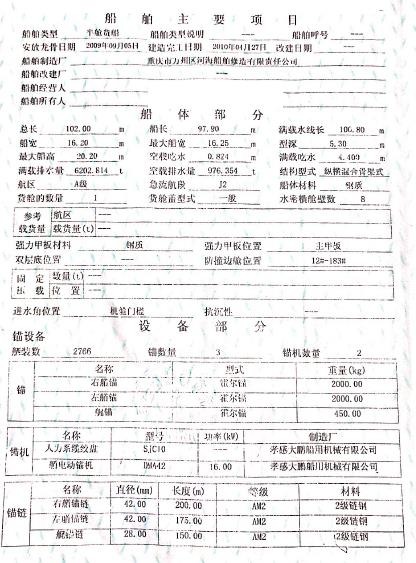 船舶主要项目
船舶类型 半舱货船 船舶类型说明 --- 船舶呼号 ---
安放龙骨日期 2009年09月05日 建造完工日期 2010年04月27日 改建日期 ---
船舶制造厂 重庆市万州区河海船舶修造有限责任公司
船舶改建厂 ---
船舶经营人
船舶所有人
船体部分
总长 102.00 m 船长 97.90 m 满载水线长 100.80 m
船宽 16.20 m 最大船宽 16.25 m 型深 5.30 m
最大船高 20.20 m 空载吃水 0.824 m 满载吃水 4.400 m
满载排水量 6202.814 t 空载排水量 976.354 t 结构型式 纵横混合骨架式
航区 A级 急流航段 J2 船体材料 钢质
货舱的数量 1 货舱盖型式 一般 水密横舱壁数 8
参考 航区 ---
载货量 载货量(t) ---
强力甲板材料 钢质 强力甲板位置 主甲板
双层底位置 --- 防撞边舱位置 12#-183#
固定 数量(t) ---
压载 位置 ---
进水角位置 机舱门槛 抗沉性 ---
设备部分
锚设备
舾装数 2766 锚数量 3 锚机数量 2
锚 名称 型式 重量(kg)
右艏锚 霍尔锚 2000.00
左艏锚 霍尔锚 2000.00
艉锚 霍尔锚 450.00
锚机 名称 型号 功率(kW) 制造厂
人力系缆绞盘 SJC10 --- 孝感大鹏船用机械有限公司
艏电动锚机 DMA42 16.00 孝感大鹏船用机械有限公司
锚链 名称 直径(mm) 长度(m) 等级 材料
右艏锚链 42.00 200.00 AM2 2级链钢
左艏锚链 42.00 175.00 AM2 2级链钢
艉锚链 28.00 150.00 AM2 2级链钢